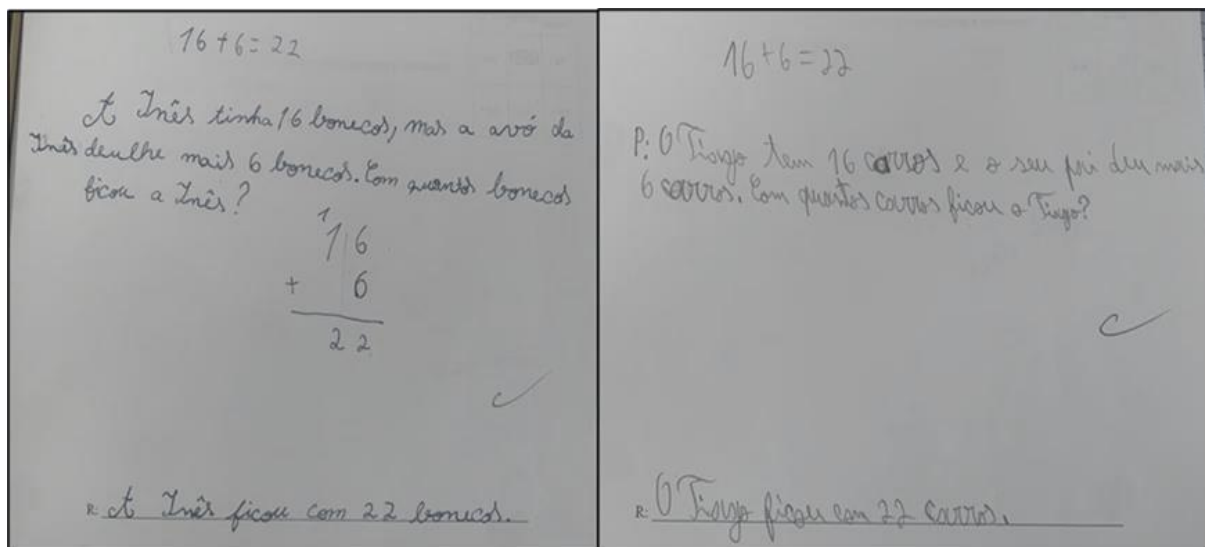 16+6=22
A Inês tinha 16 bonecos, mas a avó da
Inês deulhe mais 6 bonecos. Com quantos bonecos
ficou a Inês?
1
16
+ 6
22
C
R: A Inês ficou com 22 bonecos.
16+6=22
P: O Tiago tem 16 carros e o seu pai deu mais
6 carros. Com quantos carros ficou o Tiago?
C
R: O Tiago ficou com 22 carros.